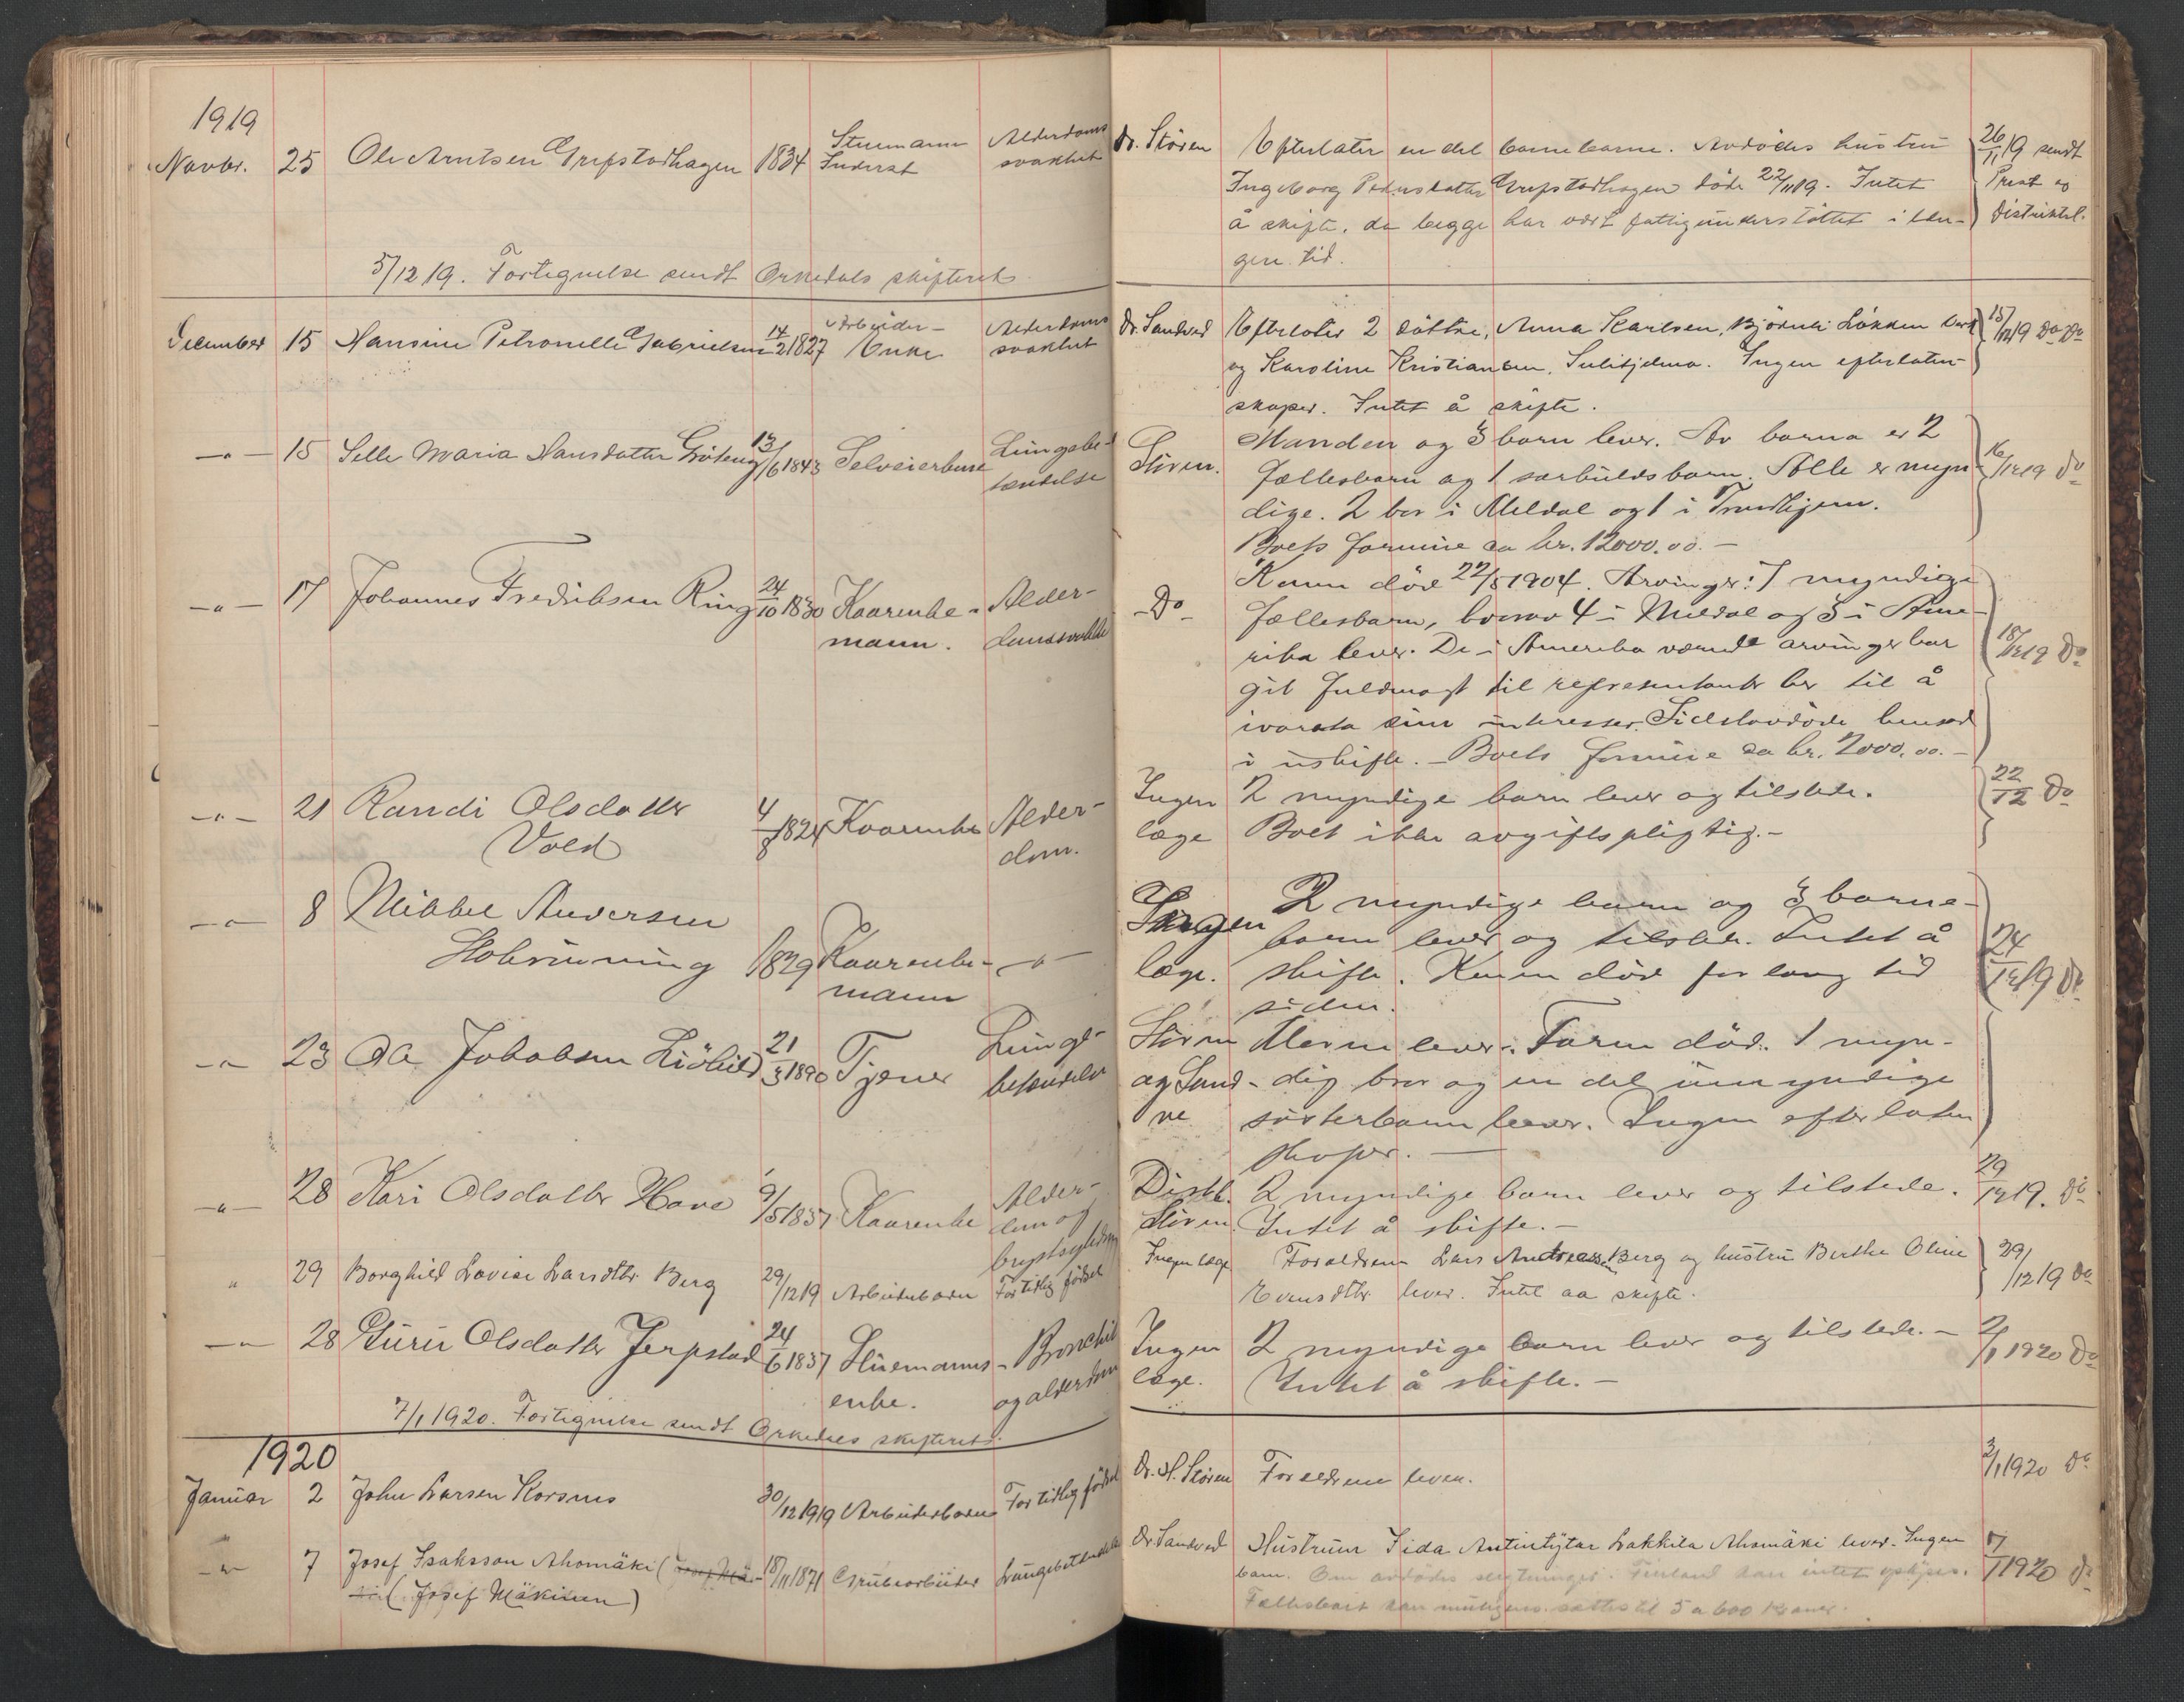 1919
Novbr. 25 Ole Arntsen Grefstadhagen 1834 Stuemann Inderst Alderdoms svakhet Dr. Stören Efterlater en del barnebarn. Avdödes hustru 26/11 19 sendt
Ingeborg Pedersdatter Grefstadhagen döde 22/11 19. Intet Prest og
å skifte, da begge har vært fattigunderstöttet i len- Distriktsl.
gere tid.
5/12 19. Fortegnelse sendt Orkedals skifteret
December 15 Hansine Petronelle Gabrielsen 14/2 1827 Arbeider- Enke Alderdoms svakhet Dr. Sandved Efterlater 2 döttre, Anna Karlsen, Björnli Løkken Verk 15/12 19 Do Do
og Karoline Kristiansen, Sulitjelma. Ingen efterlaten-
skaper. Intet å skifte.
-"- 15 Maria Hansdatter 13/6 1843 Selveierkone Lungebe- tændelse Stören. Manden og 3 barn lever. Av barna er 2 16/12 19 Do
fællesbarn og 1 særkuldsbarn. Alle er myn-
dige. 2 bor i Meldal og 1 i Trondhjem.
Boets formue ca kr. 12000.00.-
-"- 17 Johannes Fredriksen Ring 24/10 1830 Kaarenke- mann. Alder- domssvakhet -Do- Konen död 22/5 1904. Arvinger: 7 myndige
fællesbarn, hvorav 4 i Meldal og 3 i Ame-
rika lever. De i Amerika værende arvinger har 18/12 19 Do
git fuldmagt til representanter her til å
ivareta sine interesser. Sidstavdöde hensad
i uskifte. - Boets formue ca kr. 2000.00.-
-"- 21 Randi Olsdatter Vold 4/8 1824 Kaarenke Alder- dom. Ingen læge 2 myndige barn lever og tilstede. 22/12 Do
Boet ikke avgiftspligtig.-
-"- 8 Mikkel Andersen 1829 Kaarenke- mann -"- Ingen læge. 2 myndige barn og 3 barne-
barn lever og tilstede. Intet å 24/12 19 Do
skifte. Konen död for lang tid
siden.
-"- 23 Ole Jakobsen 21/3 1890 Tjener Lunge- betændelse Stören og Sand- ve Moren lever. Faren död. 1 myn-
dig bror og en del umyndige
søsterbarn lever. Ingen efterlaten
skaper. -
-"- 28 Kari Olsdatter Hove 9/5 1837 Kaarenke Alder- dom og brystsykdom Distl. Stören. 2 myndige barn lever og tilstede. 29/12 19. Do
Intet å skifte.-
" 29 Borghild Lovise Larsdtr. Berg 29/12 19 Arbeiderbarn For tidlig födsel Ingen læge Foraeldrene Lars Andreassen Berg og hustru Berthe Oline 29/12 19 Do
Evensdtr. lever. Intet aa skifte.
-"- 28 Guru Olsdatter Jerpstad 24/6 1837 Stuemanns- enke. Bronchit og alderdom Ingen læge. 2 myndige barn lever og tilstede.- 2/1 1920 Do
Intet å skifte.-
7/1 1920. Fortegnelse sendt Orkedals skifteret.
1920
Januar 2 John Larsen Korsnes 30/12 1919 Arbeiderbarn For tidlig födsel Dr. H. Stören Foraeldrene lever. 3/1 1920 Do
-"- 7 Josef Isaksson Ahomäki ( 18/11 1871 Grubearbeider Lungebetændelse Dr. Sandved Hustruen Fida Antintytar Lakkila Ahomäki lever. Ingen 7/1 1920 Do
(Josef Mäkinen) barn. Om avdödes slegtninger i Finland kan intet oplyses.
Fællesboet kan muligens sættes til 5 a 600 kroner.